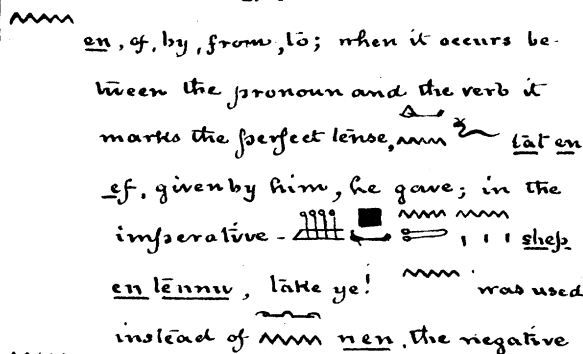 𓈖 en, of, by, from, to; when it occurs be-
tween the pronoun and the verb it
marks the perfect tense, 𓂞𓈖𓆑 tat en
ef, given by him, he gave; in the
imperative - 𓈖𓈖 shep
en tennu, take ye! 𓈖 was used
instead of 𓂜𓈖 nen, the negative